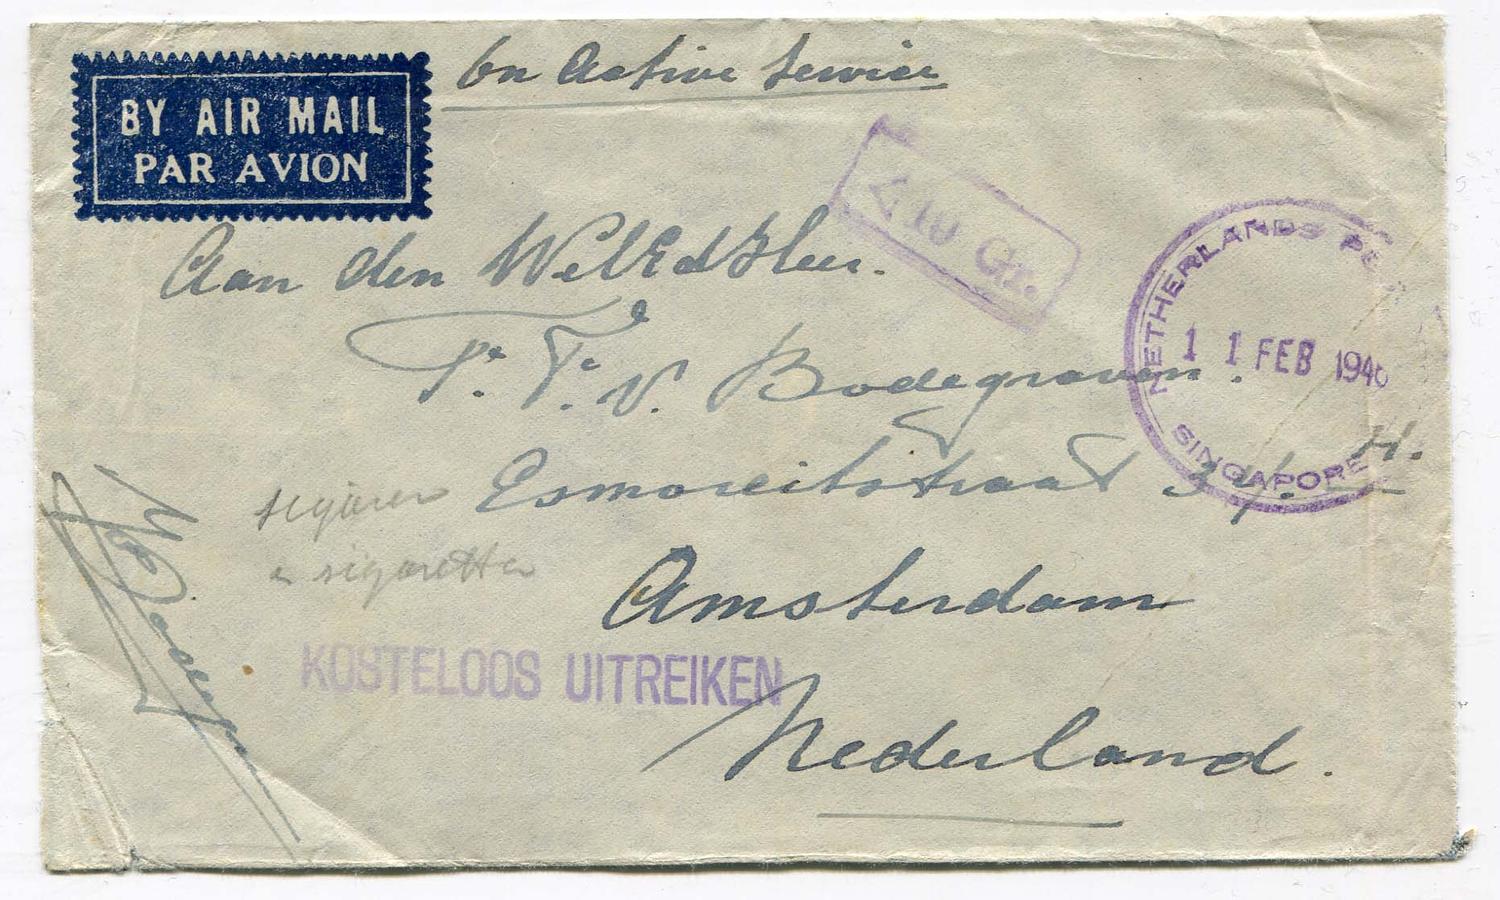 On Active Service
BY AIR MAIL
PAR AVION
< 10 Gr.
Aan den WelEdHeer.
NETHERLANDS
1 1 FEB 1946
SINGAPORE
P. F. v. Bodegraven.
Esmoreitstraat 34. H.
sigaren
en sigaretten
Amsterdam
KOSTELOOS UITREIKEN
Nederland.